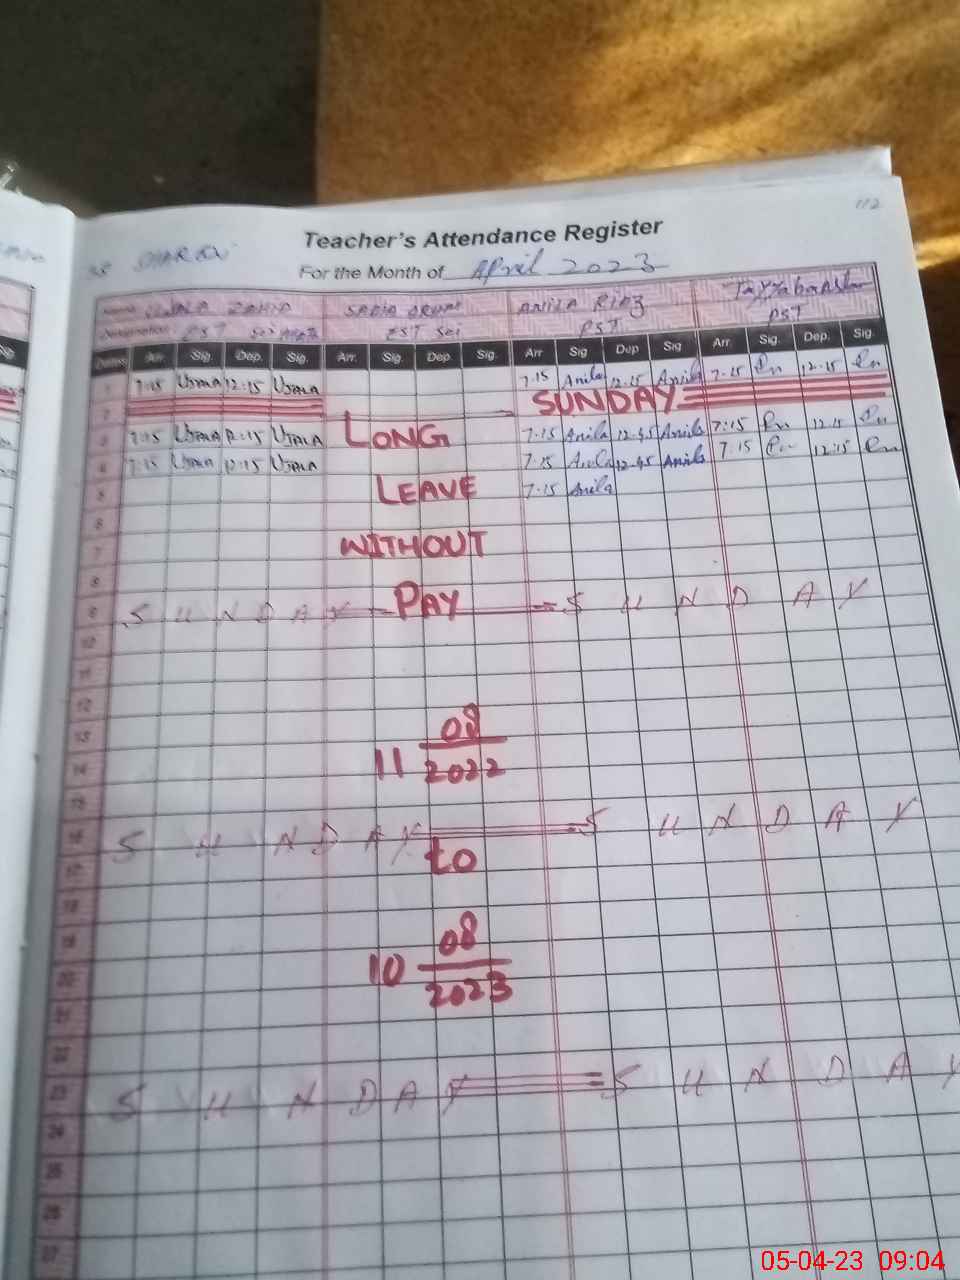 112
Teacher's Attendance Register
For the Month of April 2023
Name UJALA ZAHID SADIA ANILA RIAZ Tayyaba
Designation EST Sci EST Sci PST PST
Dates Arr. Sig. Dep. Sig. Arr. Sig. Dep. Sig. Arr Sig Dep Sig Arr. Sig. Dep. Sig.
1 7:15 UJALA 12:15 UJALA 7.15 Anila 12.15 Anila 7.15 12.15
2 SUNDAY
3 7:15 UJALA 12:15 UJALA LONG 7.15 Anila 12.45 Anila 7:15 12:15
4 7:15 UJALA 12:15 UJALA 7.15 Anila 12.45 Anila 7.15 12:15
5 LEAVE 7.15 Anila
6
7 WITHOUT
8
9 SUNDAY PAY SUNDAY
10
11
12
13 08
14 11 2022
15
16 SUNDAY SUNDAY
17 to
18
19 08
20 10 2023
21
22
23 SUNDAY SUNDAY
24
25
26
27
05-04-23 09:04